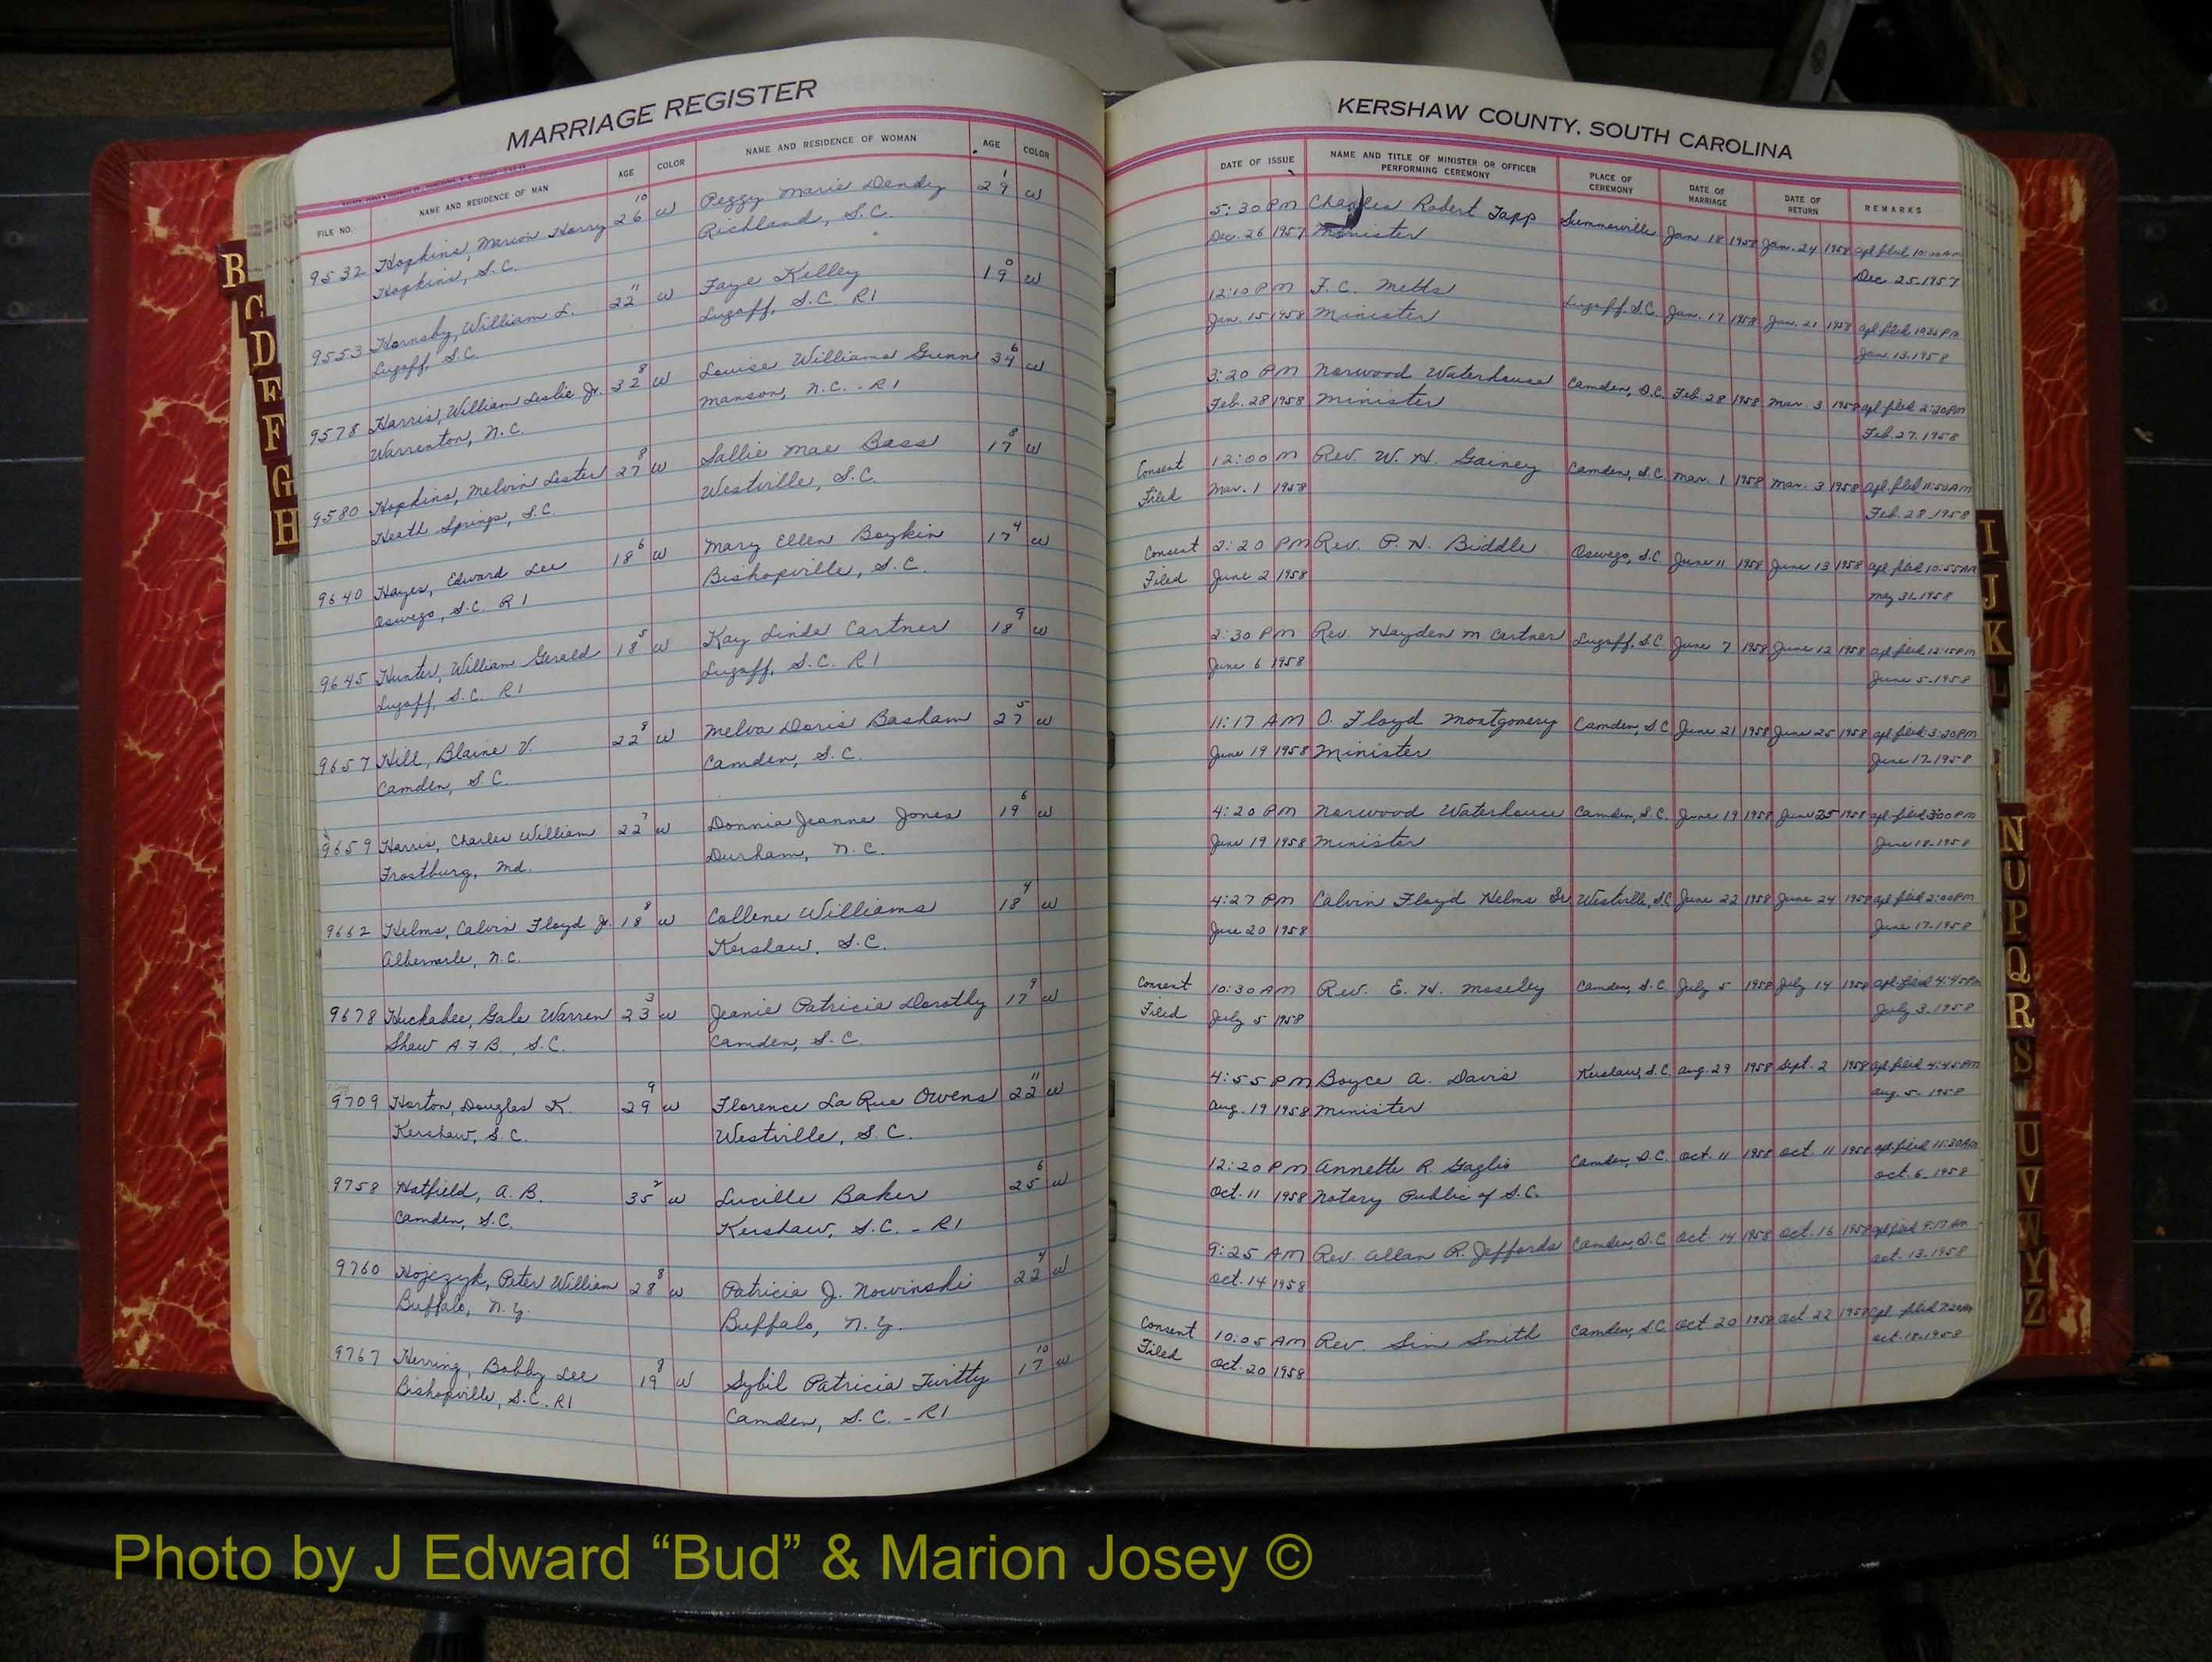 MARRIAGE REGISTER
FILE NO. NAME AND RESIDENCE OF MAN AGE COLOR NAME AND RESIDENCE OF WOMAN AGE COLOR
9532 Hopkins, Marion Harry 26 10 W Peggy Marie Dendy 29 1 W
Hopkins, S.C. Richland, S.C.
9553 Hornsby, William L. 22 11 W Faye Kelley 19 0 W
Lugoff, S.C. Lugoff, S.C. R1
9578 Harris, William Leslie Jr. 32 8 W Louise Williams 34 6 W
Warrenton, N.C. Manson, N.C. - R1
9580 Hopkins, Melvin Lester 27 8 W Sallie Mae Bass 17 8 W
Heath Springs, S.C. Westville, S.C.
9640 Hayes, Edward Lee 18 6 W Mary Ellen Boykin 17 4 W
Oswego, S.C. R1 Bishopville, S.C.
9645 Hunter, William Gerald 18 5 W Kay Linda Cartner 18 9 W
Lugoff, S.C. R1 Lugoff, S.C. R1
9657 Hill, Blaine V. 22 8 W Melva Doris Basham 27 5 W
Camden, S.C. Camden, S.C.
9659 Harris, Charles William 22 7 W Donnia Jeanne Jones 19 6 W
Frostburg, Md. Durham, N.C.
9662 Helms, Calvin Floyd Jr. 18 8 W Collene Williams 18 4 W
Albemarle, N.C. Kershaw, S.C.
9678 Huckabee, Gale Warren 23 3 W Jeanie Patricia Dorothy 17 9 W
Shaw A.F.B., S.C. Camden, S.C.
9709 Horton, Douglas K. 29 9 W Florence La Rue Owens 22 11 W
Kershaw, S.C. Westville, S.C.
9758 Hatfield, A. B. 35 2 W Lucille Baker 25 6 W
Camden, S.C. Kershaw, S.C. - R1
9760 Hojczyk, Peter William 28 8 W Patricia J. Nowinski 22 4 W
Buffalo, N.Y. Buffalo, N.Y.
9767 Herring, Bobby Lee 19 8 W Sybil Patricia 17 10 W
Bishopville, S.C. R1 Camden, S.C. - R1
KERSHAW COUNTY, SOUTH CAROLINA
DATE OF ISSUE NAME AND TITLE OF MINISTER OR OFFICER PERFORMING CEREMONY PLACE OF CEREMONY DATE OF MARRIAGE DATE OF RETURN REMARKS
5:30 PM Charles Robert Tapp Summerville Jan 18 1958 Jan. 24 1958 apl filed 10:00 AM
Dec. 26 1957 Minister Dec 25-1957
12:10 PM F. C. Metts Lugoff, S.C. Jan. 17 1958 Jan. 21 1958 apl filed
Jan. 15 1958 Minister Jan. 13-1958
3:20 PM Norwood Waterhouse Camden, S.C. Feb. 28 1958 Mar. 3 1958 apl filed 2:20 PM
Feb. 28 1958 Minister Feb. 27-1958
Consent 12:00 M Rev. W. H. Gainey Camden, S.C. Mar. 1 1958 Mar. 3 1958 apl. filed 11:50 AM
Filed Mar. 1 1958 Feb. 28-1958
Consent 2:20 PM Rev. P. H. Biddle Oswego, S.C. June 11 1958 June 13 1958 apl filed 10:55 AM
Filed June 2 1958 May 31-1958
2:30 PM Rev. Hayden M Cartner Lugoff, S.C. June 7 1958 June 12 1958 apl filed 12:15 PM
June 6 1958 June 5-1958
11:17 AM O. Floyd Montgomery Camden, S.C. June 21 1958 June 25 1958 apl filed 3:20 PM
June 19 1958 Minister June 17-1958
4:20 PM Norwood Waterhouse Camden, S.C. June 19 1958 June 25 1958 apl. filed 3:00 PM
June 19 1958 Minister June 18-1958
4:27 PM Calvin Floyd Helms Sr Westville, S.C. June 22 1958 June 24 1958 apl filed 2:00 PM
June 20 1958 June 17-1958
Consent 10:30 AM Rev. E. H. Moseley Camden, S.C. July 5 1958 July 14 1958 apl. filed 4:45 PM
Filed July 5 1958 July 3-1958
4:55 PM Boyce A. Davis Kershaw, S.C. Aug. 29 1958 Sept. 2 1958 apl filed 4:45 PM
Aug. 19 1958 Minister Aug. 5-1958
12:20 PM Annette R. Gaglio Camden, S.C. Oct. 11 1958 Oct. 11 1958 apl. filed 11:30 AM
Oct. 11 1958 Notary Public of S.C. Oct. 6-1958
9:25 AM Rev. Allan R. Jeffords Camden, S.C. Oct. 14 1958 Oct. 16 1958 apl filed 9:17 AM
Oct. 14 1958 Oct. 13-1958
Consent 10:05 AM Rev. Sim Smith Camden, S.C. Oct 20 1958 Oct 22 1958 apl. filed
Filed Oct. 20 1958 Oct. 18-1958
B
C
D
E
F
G
H
I
J
K
L
N
O
P
Q
R
S
U
V
W
Y
Z
Photo by J Edward “Bud” & Marion Josey ©